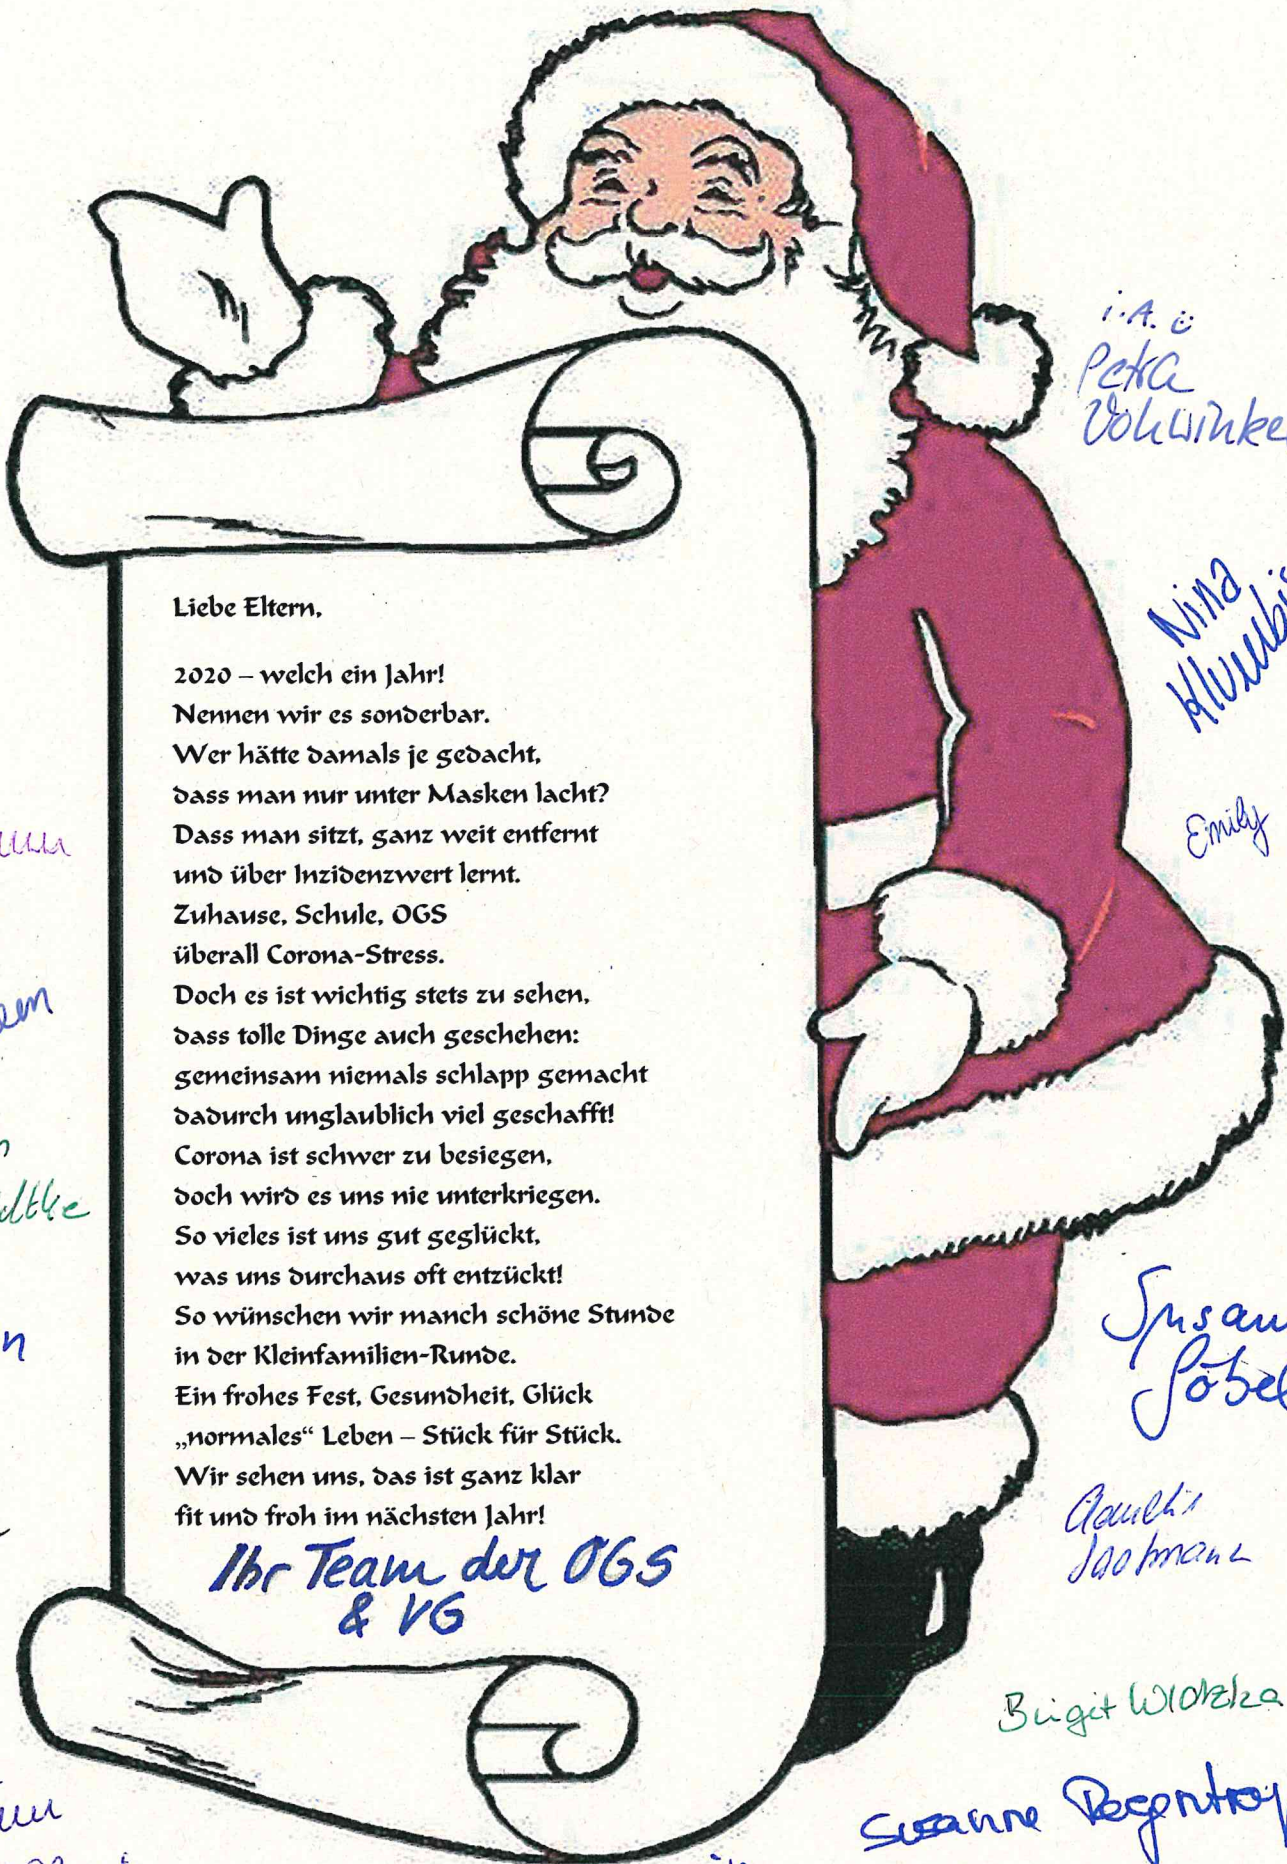 i.A.
Petra
Nina
Liebe Eltern,
2020 – welch ein Jahr!
Nennen wir es sonderbar.
Wer hätte damals je gedacht,
dass man nur unter Masken lacht?
Dass man sitzt, ganz weit entfernt
und über Inzidenzwert lernt.
Zuhause, Schule, OGS
überall Corona-Stress.
Doch es ist wichtig stets zu sehen,
dass tolle Dinge auch geschehen:
gemeinsam niemals schlapp gemacht
dadurch unglaublich viel geschafft!
Corona ist schwer zu besiegen,
doch wird es uns nie unterkriegen.
So vieles ist uns gut geglückt,
was uns durchaus oft entzückt!
So wünschen wir manch schöne Stunde
in der Kleinfamilien-Runde.
Ein frohes Fest, Gesundheit, Glück
„normales“ Leben – Stück für Stück.
Wir sehen uns, das ist ganz klar
fit und froh im nächsten Jahr!
Ihr Team der OGS
& VG
Emily
Birgit
Susanne